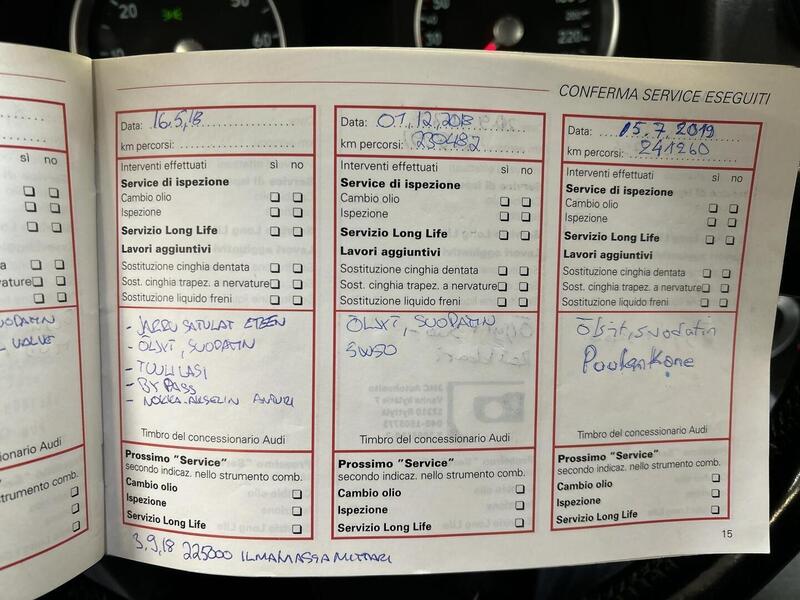 20
60
30
220
CONFERMA SERVICE ESEGUITI
Data: 16.5,18
km percorsi:
Interventi effettuati sì no
Service di ispezione
Cambio olio
Ispezione
Servizio Long Life
Lavori aggiuntivi
Sostituzione cinghia dentata
Sost. cinghia trapez. a nervature
Sostituzione liquido freni
- JARRU SATULAT ETEEN
- ÖLJYT, SUODATIN
- TUULILASI
- BY PASS
- NOKKA-AKSELIN ANTURI
Timbro del concessionario Audi
Prossimo "Service"
secondo indicaz. nello strumento comb.
Cambio olio
Ispezione
Servizio Long Life
3.9,18 225000 ILMAMASSAMITTARI
Data: 01,12,2018
km percorsi:
Interventi effettuati sì no
Service di ispezione
Cambio olio
Ispezione
Servizio Long Life
Lavori aggiuntivi
Sostituzione cinghia dentata
Sost. cinghia trapez. a nervature
Sostituzione liquido freni
ÖLJYT, SUODATIN
5W50
Timbro del concessionario Audi
Prossimo "Service"
secondo indicaz. nello strumento comb.
Cambio olio
Ispezione
Servizio Long Life
Data: 15.7.2019
km percorsi: 241260
Interventi effettuati sì no
Service di ispezione
Cambio olio
Ispezione
Servizio Long Life
Lavori aggiuntivi
Sostituzione cinghia dentata
Sost. cinghia trapez. a nervature
Sostituzione liquido freni
Öljyt, suodatin
Timbro del concessionario Audi
Prossimo "Service"
secondo indicaz. nello strumento comb.
Cambio olio
Ispezione
Servizio Long Life
15